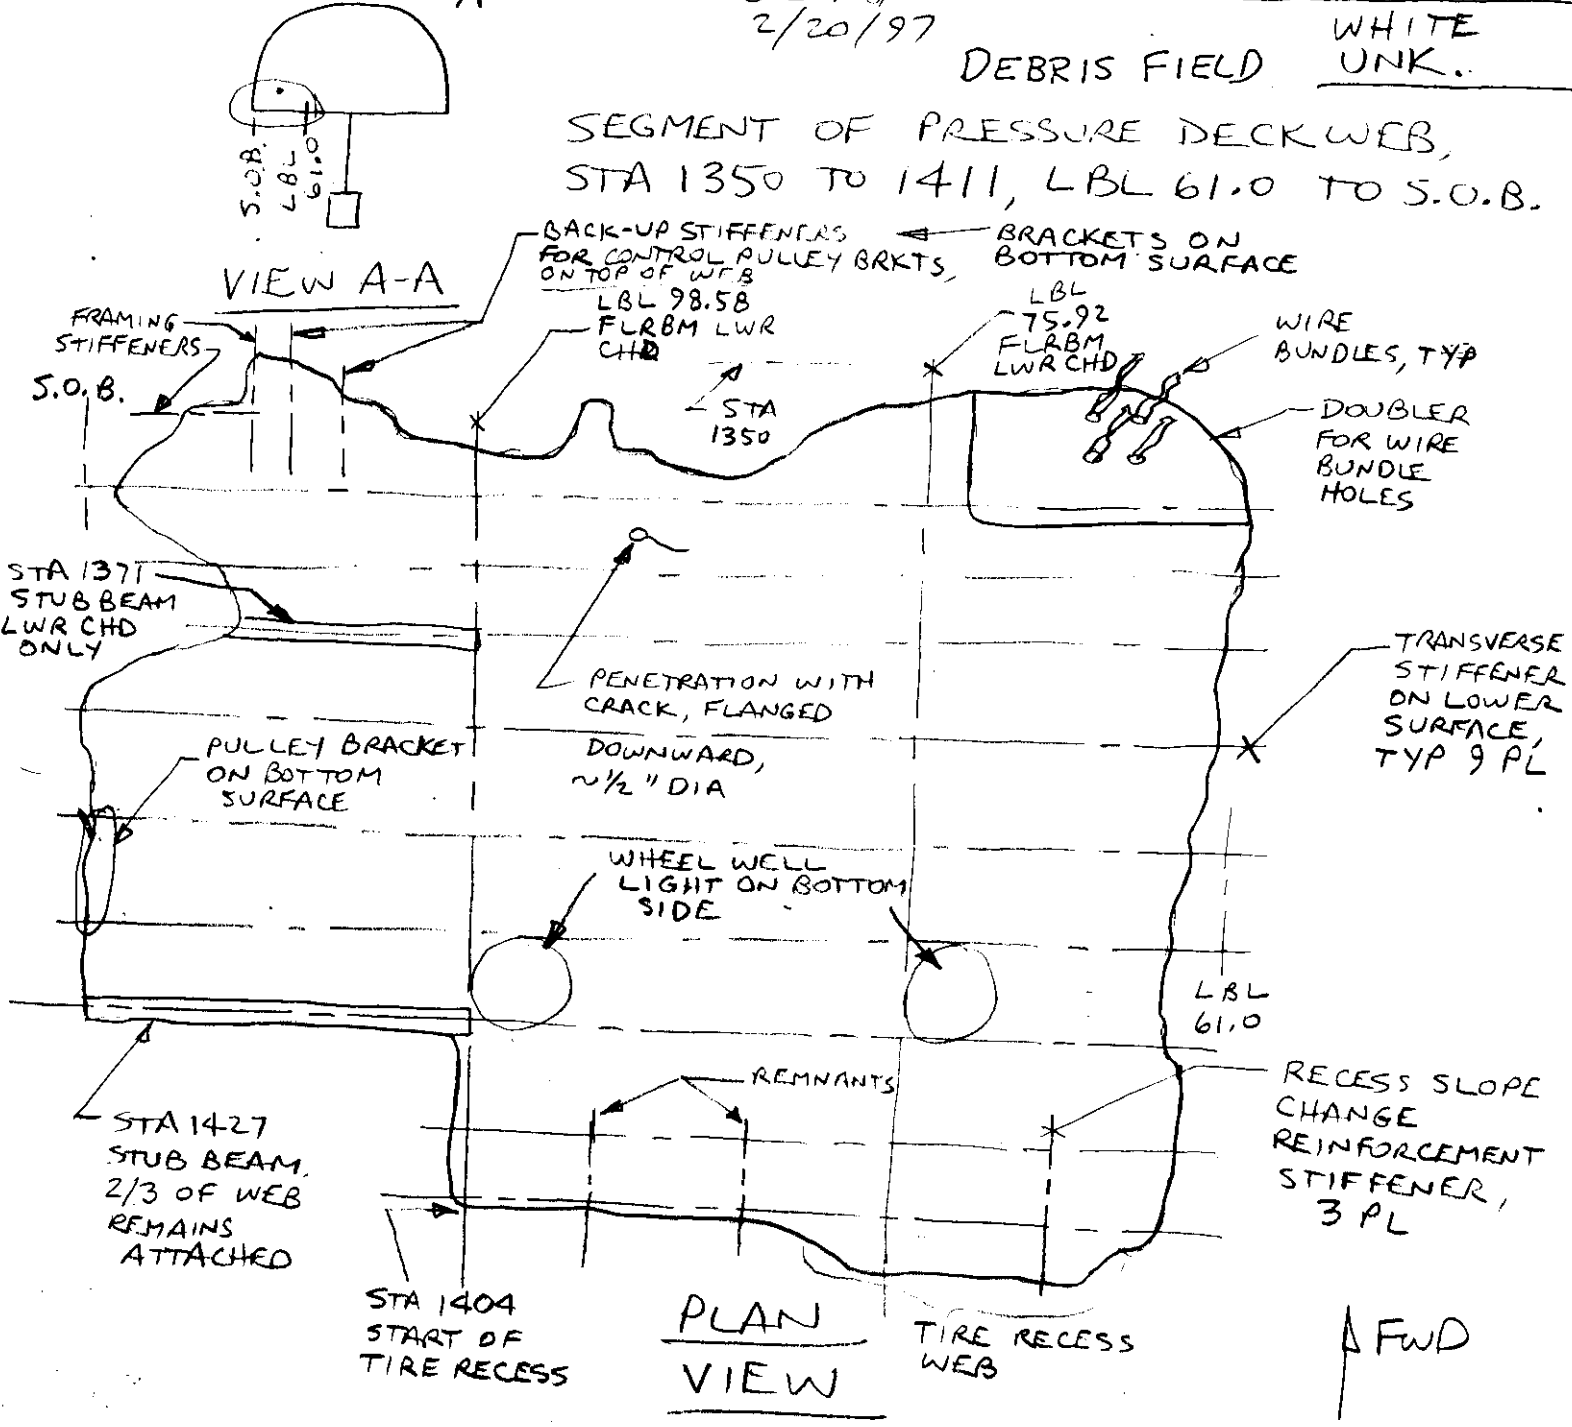 2/20/97
WHITE
UNK.
DEBRIS FIELD
SEGMENT OF PRESSURE DECK WEB,
STA 1350 TO 1411, LBL 61.0 TO S.O.B.
S.O.B.
LBL
61.0
VIEW A-A
BACK-UP STIFFENERS
FOR CONTROL PULLEY BRKTS,
ON TOP OF WEB
BRACKETS ON
BOTTOM SURFACE
FRAMING
STIFFENERS
S.O.B.
LBL 98.58
FLRBM LWR
CHD
STA
1350
LBL
75.92
FLRBM
LWR CHD
WIRE
BUNDLES, TYP
DOUBLER
FOR WIRE
BUNDLE
HOLES
STA 1371
STUB BEAM
LWR CHD
ONLY
PENETRATION WITH
CRACK, FLANGED
DOWNWARD,
~1/2" DIA
TRANSVERSE
STIFFENER
ON LOWER
SURFACE,
TYP 9 PL
PULLEY BRACKET
ON BOTTOM
SURFACE
WHEEL WELL
LIGHT ON BOTTOM
SIDE
LBL
61.0
REMNANTS
RECESS SLOPE
CHANGE
REINFORCEMENT
STIFFENER,
3 PL
STA 1427
STUB BEAM,
2/3 OF WEB
REMAINS
ATTACHED
STA 1404
START OF
TIRE RECESS
PLAN
VIEW
TIRE RECESS
WEB
FWD